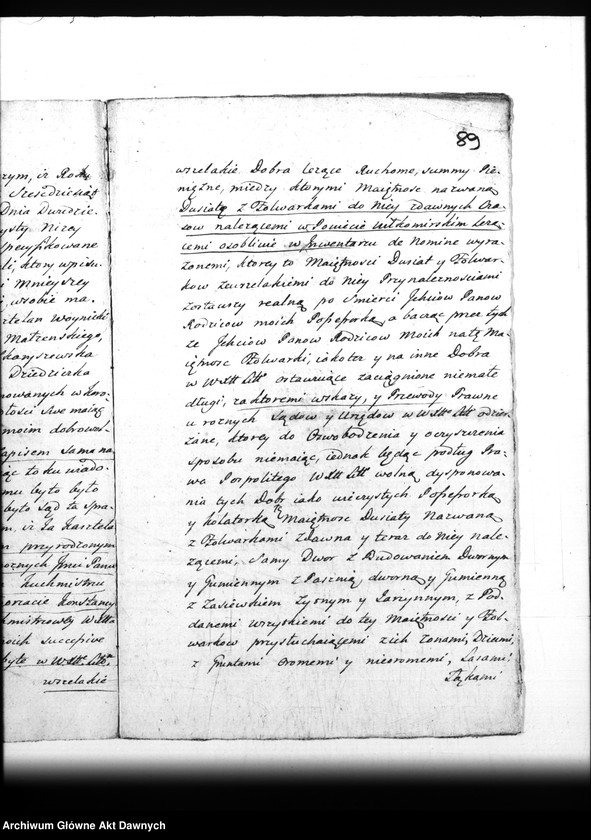 89
zym, iż Roku
Sześćdziesiąt
Dnia Dwudzie
ysty Niżey
specyfikowane
li, ktory wpisu
i Mnieyszey
, wrobie ma.
rtelan Woynicki
Matzenskiego,
Kanyszewska
Dziedziczka
nowanych w koro
łości swe maiąc
moim dobrowol
apisem sama na
ąc to ku wiado
mu było było
było Sąd ta spra
m, iż Ja Kasztela
n przyrodzonym
ocznych Jmci Panu
Kuchmistru
oracie Konstancy
mistrzowey W. Xa
oich succesive
byłe w W. Xtt. Litt.
wszelakie
wszelakie Dobra leżące Ruchome, summy Pie-
niężne, między ktorymi Maiętność nazwaną
Dusiatę z Folwarkami do Niey zdawnych Cza-
sow należącemi w Powiecie Wiłkomirskim leżą-
cemi osobliwie w Inwentarzu de Nomine wyra-
żonemi, ktorey to Maiętności Dusiat y Folwar-
kow zewszelakiemi do Niey Przynależnościami
zostawszy realną po śmierci Jchciów Panow
Rodzicow moich Possessorką, a bacząc przez tych
że Jchciów Panow Rodzicow Moich na tę Ma-
iętność Folwarki, iako też y na inne Dobra
w W. Xtt Litt. ostawuiące zaciągnione niemałe
długi, za ktoremi wskazy, y Przewody Prawne
u roznych Sądow y Urzędow w W. Xtt Litt. odzier-
żane, ktorey do Oswobodzenia y oczyszczenia
sposobu niemaiąc, iednak będąc podług Pra-
wa Pospolitego W. Xtt Litt. wolną dysponowa-
nia tych Dobr iako wieczystych Possessorką
y kolatorką Tę Maiętność Dusiaty Nazwaną
z Folwarkami zdawna y teraz do Niey nale-
żącemi, Samy Dwor z Budowaniem Dwornym
y Gumiennym z Pasznią dworną y Gumienną
z Zasiewkiem żytnym y Jarzynnym, z Pod-
danemi wszystkiemi do tey Maiętności y Fol-
warkow przysłuchaiącemi z ich Żonami, Dziećmi,
z Gruntami oromemi y nieoromemi, Lasami,
Łąkami
Archiwum Główne Akt Dawnych